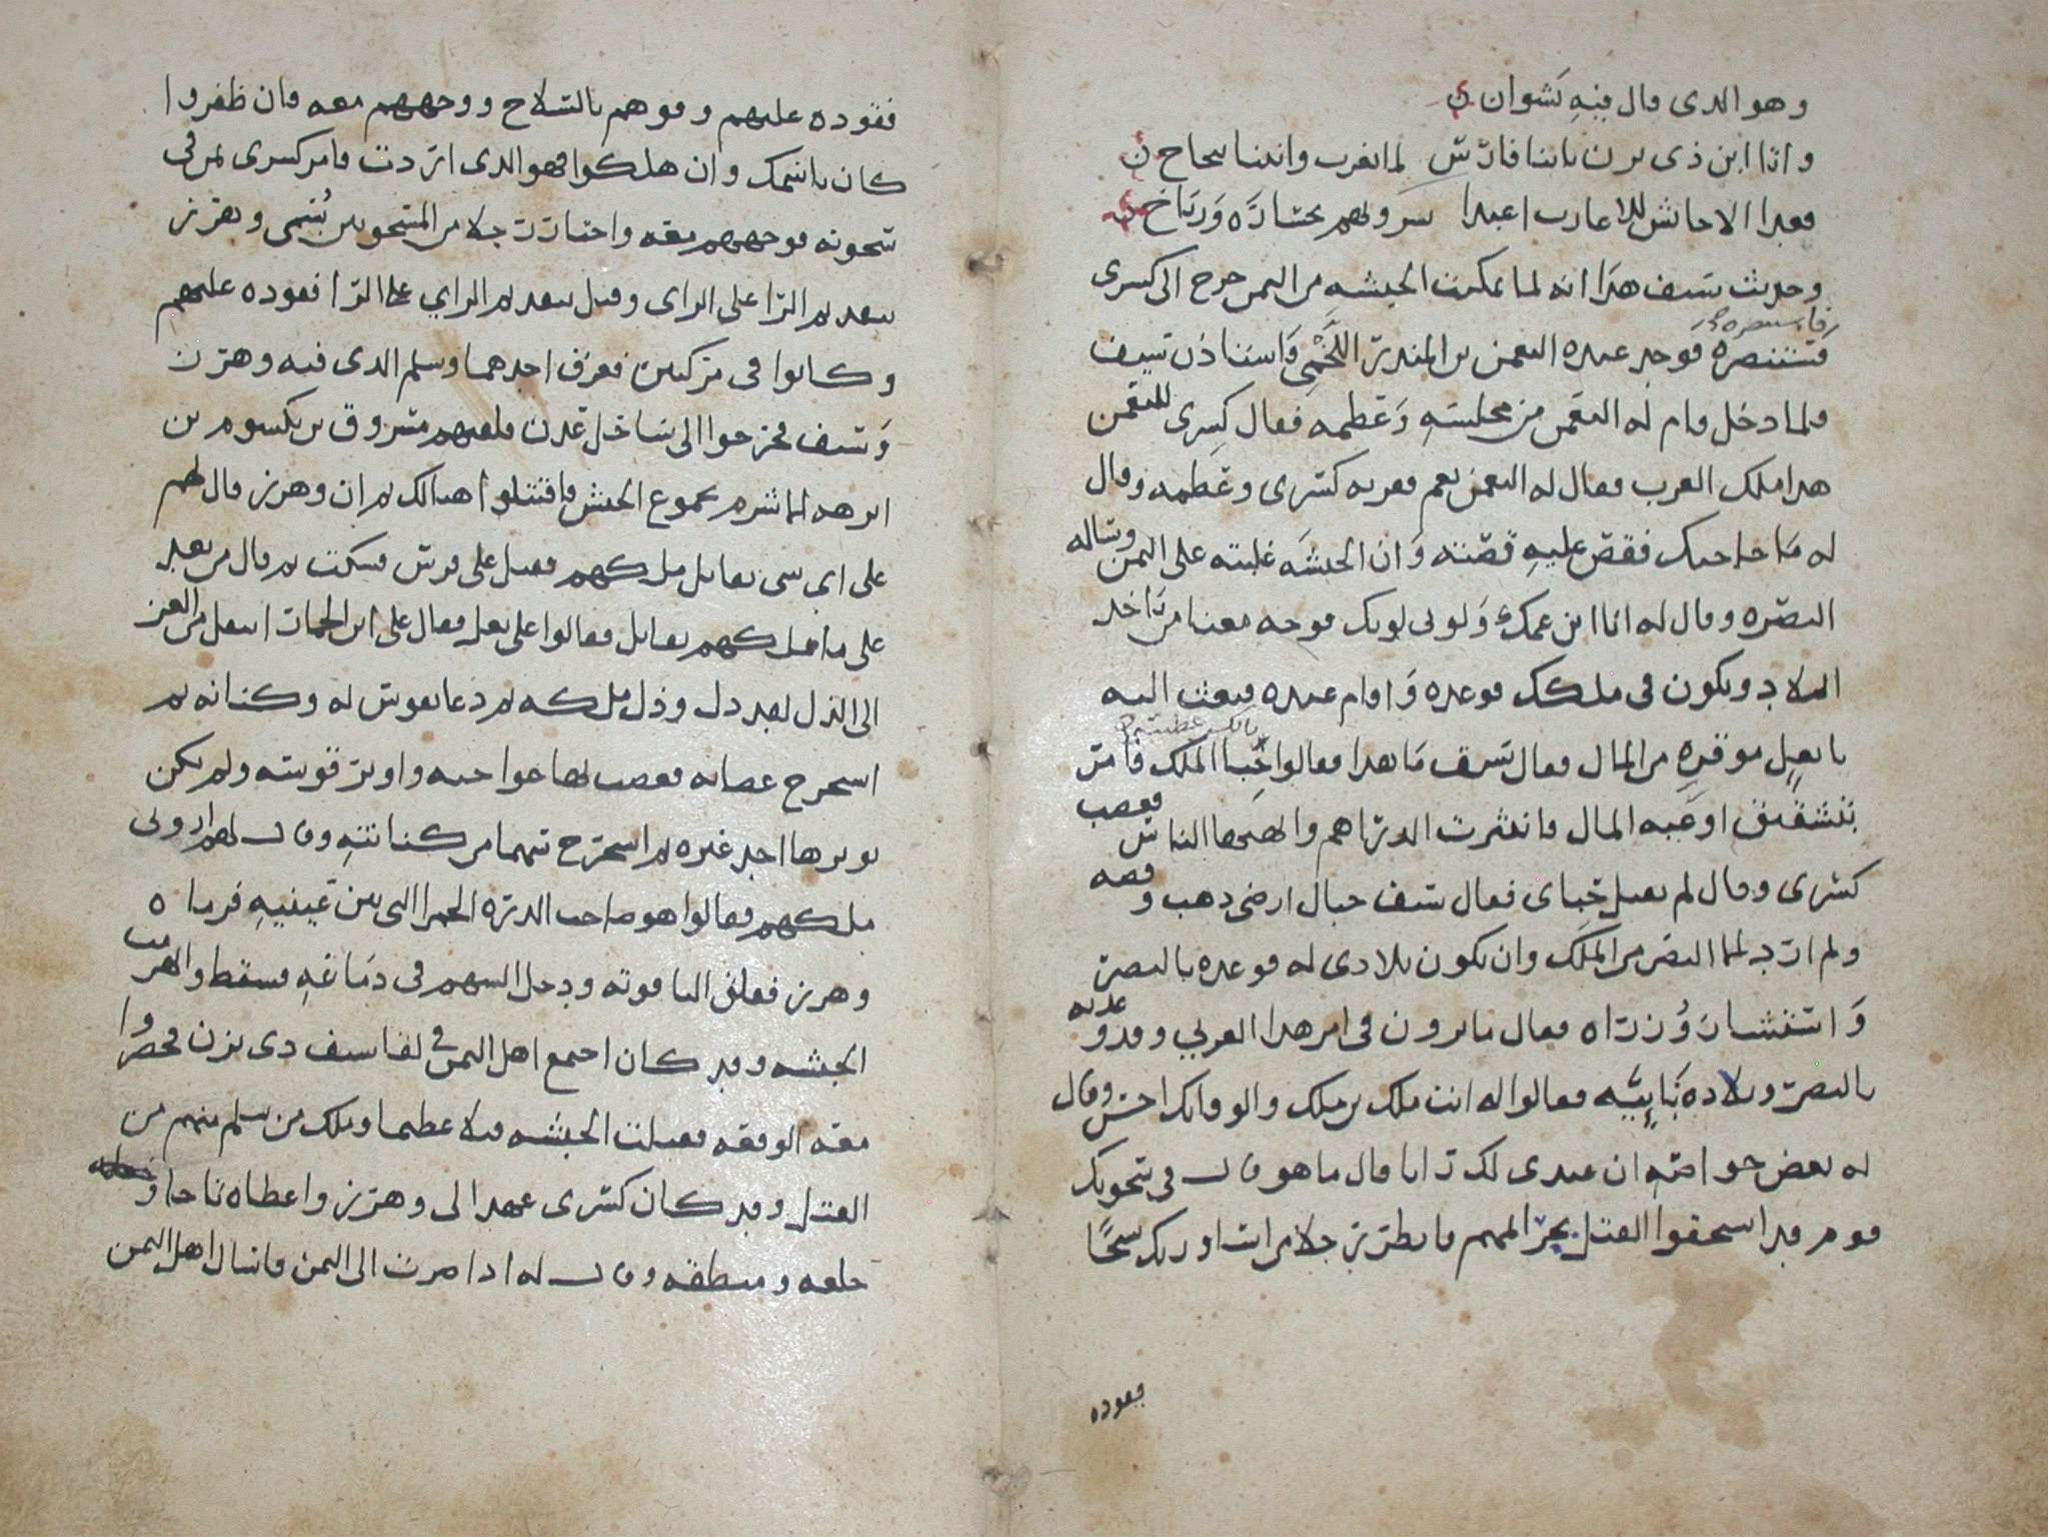 وهو الذى قال فيه نشوان
واذا ابن ذى يزن بابنا فارس لما تغرب وانثنا بنجاح
فغدا الاحابش للاعارب اعبدا
وحديث سيف هذا انه لما تمكنت الحبشه من اليمن خرج الى كسرى
فاستنصره
يستنصره فوجد عنده النعمن بن المنذر اللخمى فاستاذن سيف
فلما دخل قام له النعمن من مجلسه وعظمه فقال كسرى للنعمن
هذا ملك العرب فقال له النعمن نعم فقربه كسرى وعظمه وقال
له ما حاجتك فقص عليه قصته وان الحبشه غلبته على اليمن وساله
النصره وقال له انا ابن عمك ولونى لونك فوجه معنا من ياخذ
البلاد ويكون فى ملكك فوعده واقام عنده فبعث اليه
بابغل موقره من المال فقال سيف ما هذا فقالوا حبا الملك فامر
بتشقيق اوعيه المال فانتثرت الدراهم والتقطها الناس فغضب
كسرى وقال لم يقبل حباى فقال سيف جبال ارضى ذهب وفضه
ولم ارد الا النصر من الملك وان يكون بلادى له فوعده بالنصر
واستشار وزراه فقال ما ترون فى امر هذا العربي وقد وعدته
بالنصر وبلاده نايبه فقالوا له انت ملك بن ملك والوفا بك احسن وقال
له بعض خواصه ان عندى لك رايا قال ما هو قال فى سجونك
قوم قد استحقوا القتل بجرايمهم فانظر رجلا من اساورتك سجنا
فقوده
فقوده عليهم وقوهم بالسلاح ووجههم معه فان ظفروا
كان باسمك وان هلكوا فهو الذى اردت فامر كسرى بمن فى
سجونه فوجههم معه واختار رجلا من المسجونين يسمى وهرز
وكانوا فى مركبين فغرق احدهما وسلم الذى فيه وهرز
وسيف فخرجوا الى ساحل عدن فلقيهم مسروق بن يكسوم بن
ابرهه الاشرم بجموع الحبش فاقتتلوا هنالك ثم ان وهرز قال لهم
على اى شى يقاتل ملكهم فقيل على فرس فسكت ثم قال من بعد
على ما ملكهم يقاتل فقالوا على بغل فقال على ابن الحمار انتقل من العز
الى الذل لقد ذل وذل ملكه ثم دعا بقوس له وكنانه ثم
استخرج عصابه فعصب بها حواجبه واوتر قوسه ولم يكن
يوترها احد غيره ثم استخرج سهما من كنانته وقال لهم ارونى
ملكهم فقالوا هو صاحب الدره الحمرا التى بين عينيه فرماه
وهرز ففلق الياقوته ودخل السهم فى دماغه فسقط وانهزمت
الحبشه وقد كان اجتمع اهل اليمن فى لقا سيف ذى يزن فحضروا
معه الوقعه فقتلت الحبشه قتلا عظيما وملك من سلم منهم من
القتل وقد كان كسرى عهد الى وهرز واعطاه تاجا و
خلعه ومنطقه وقال له اذا صرت الى اليمن فاسال اهل اليمن